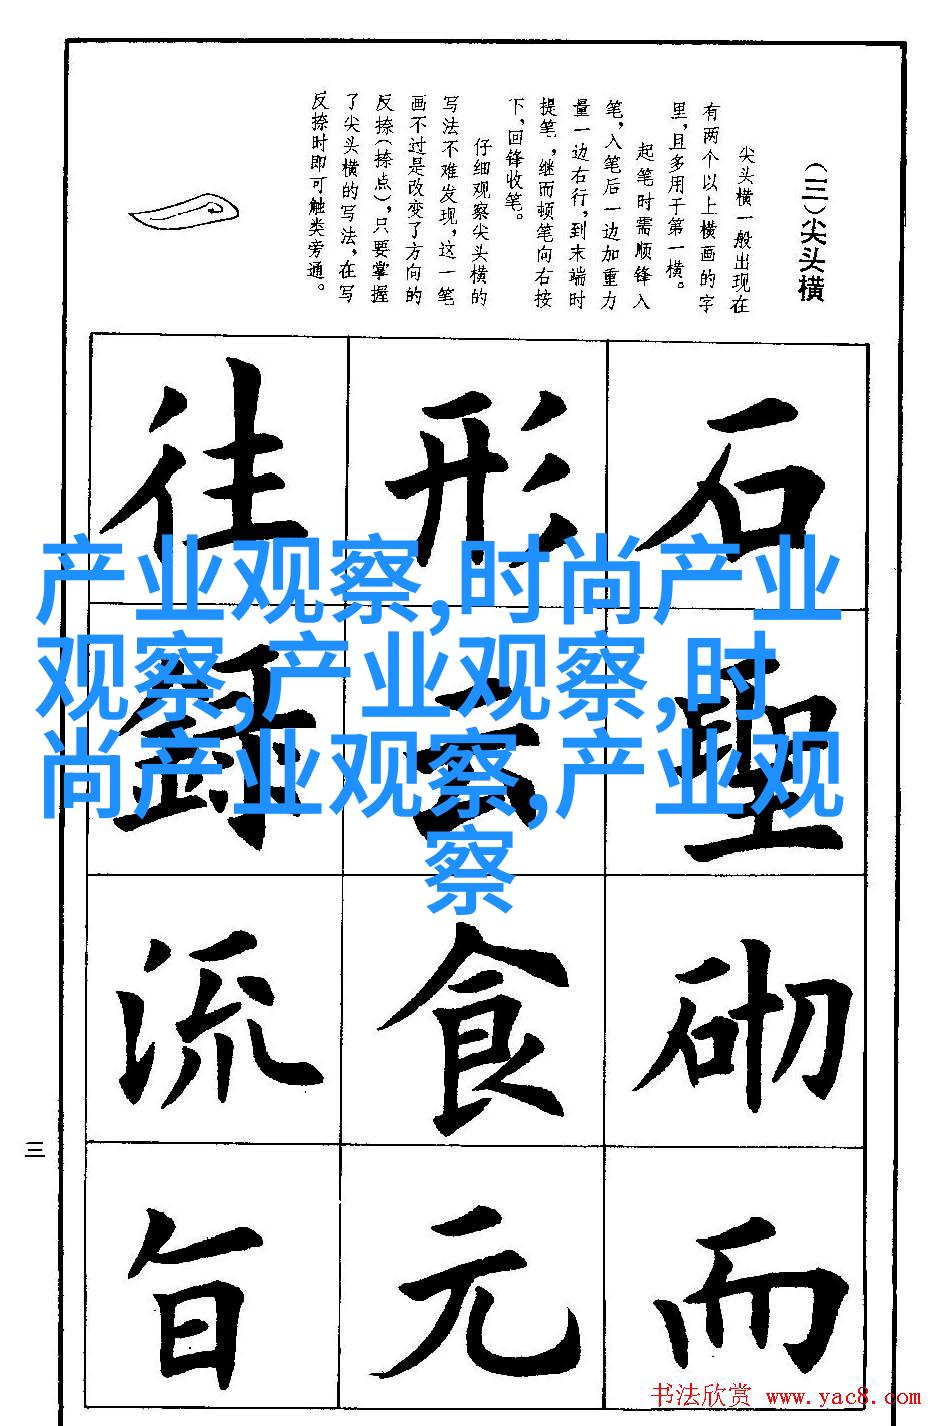 （三）尖头横
尖头横一般出现在
有两个以上横画的字
里,且多用于第一横。
起笔时需顺锋入
笔,入笔后一边加重力
量一边右行,到末端时
提笔,继而顿笔向右按
下,回锋收笔。
仔细观察尖头横的
写法不难发现,这一笔
画不过是改变了方向的
反捺(捺点),只要掌握
了尖头横的写法,在写
反捺时即可触类旁通。
石
砌
而
形
云
食
元
往
流
旨
产业观察,时尚产业
观察,产业观察,时
尚产业观察,产业观
察
三
书法欣赏 www.yac8.com